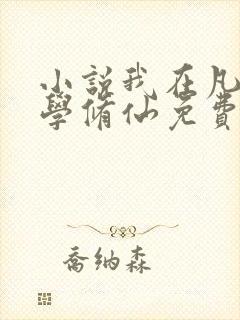 小説我在凡
學脩仙免費
喬納森